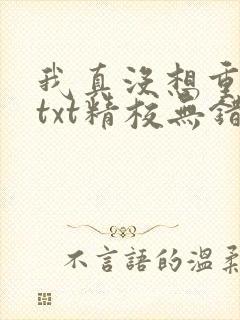 我真没想重
txt精校無錯
不言語的温柔